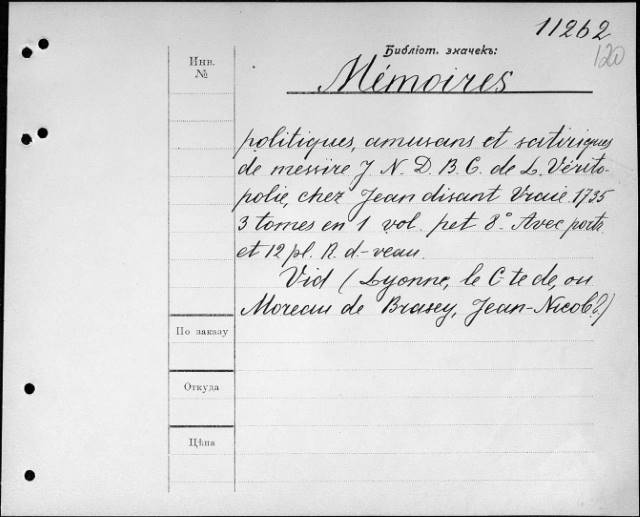 11262
120
Библіот. значекъ:
Инв.
№
Mémoires
politiques, amusans et satiriques
de messire J. N. D. B. C. de L. Vérito-
polie, chez Jean disant Vrai. 1735
3 tomes en 1 vol. pet 8.° Avec portr.
et 12 pl. R. d-veau.
Vid (Lyonne, le C-te de, ou
Moreau de Brasey, Jean-Nicol.)
По заказу
Откуда
Цѣна